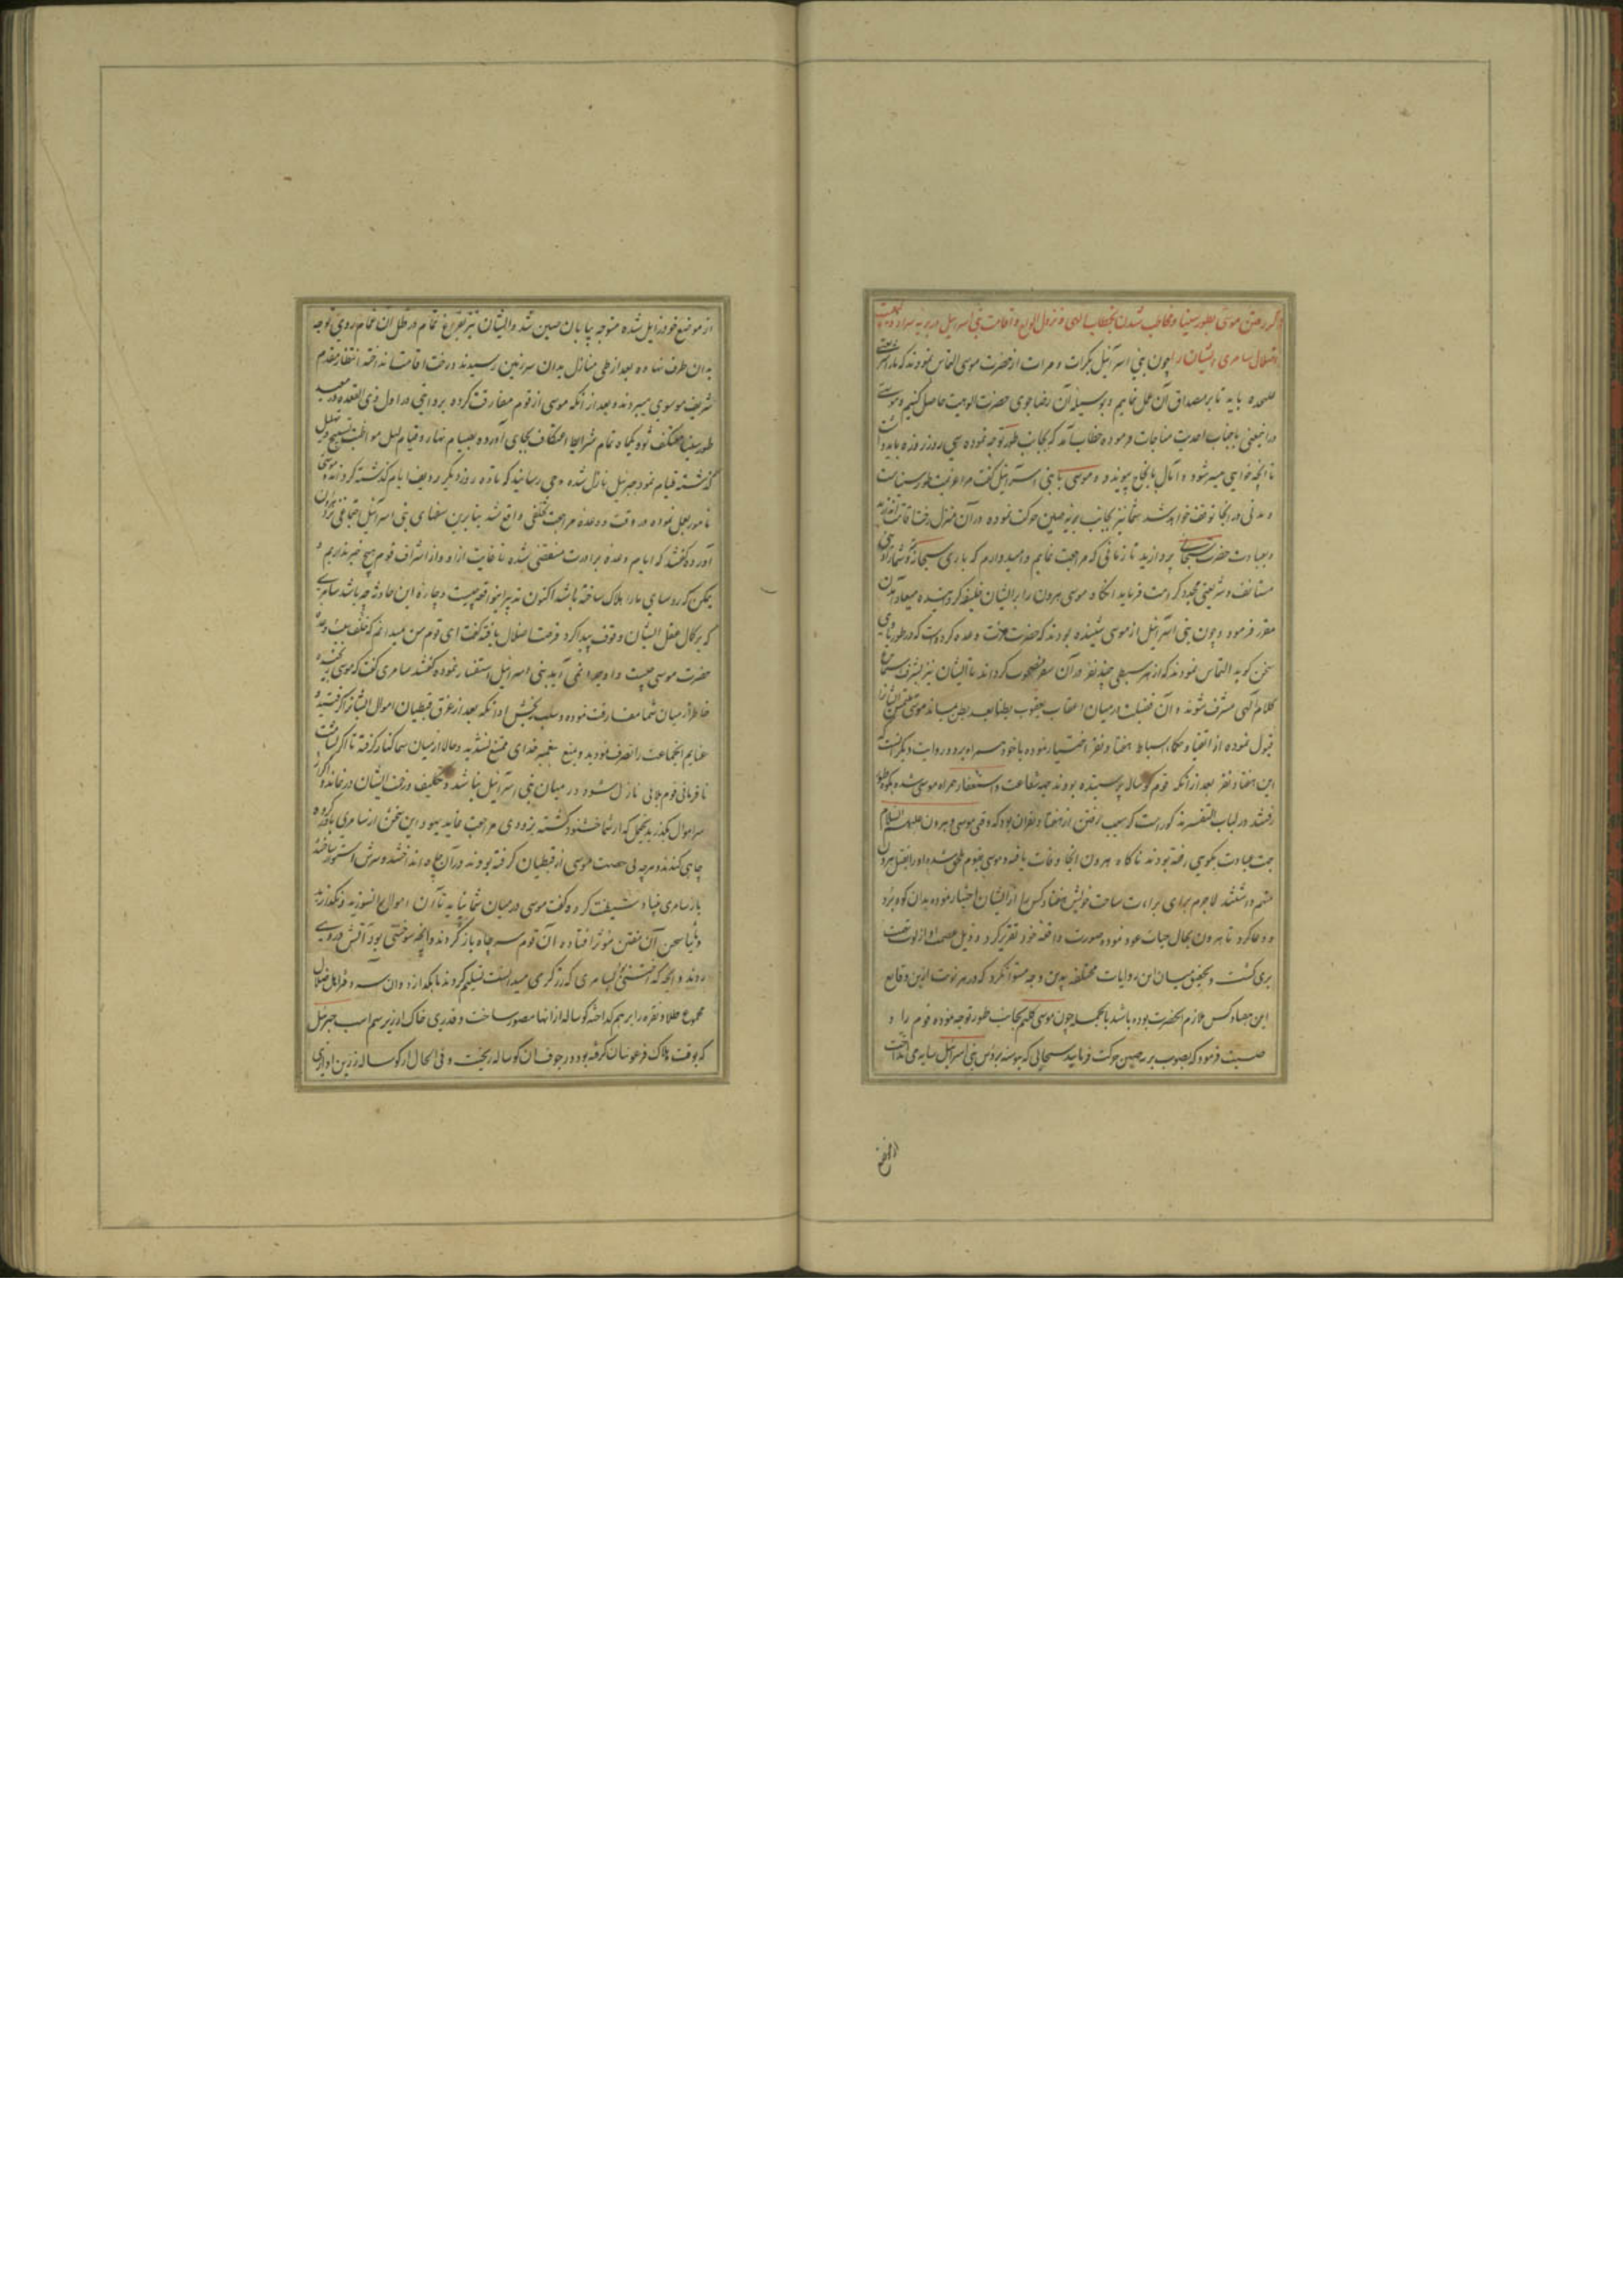 ذکر رفتن موسی بطور سینا و مخاطب شدن بخطاب الهی و نزول الواح و اقامت بنی اسرائیل در بریه
اضلال سامری ایشان را چون بنی اسرائیل بکرات و مرات از حضرت موسی التماس نمودند که ما را
علیحده باید تا بر مصداق آن عمل نماییم و بوسیله آن رضا جوی حضرت الوهیت حاصل کنیم و موسی
درا ینمعنی با جناب احدیت مناجات فرموده خطاب آمد که بجانب طور توجه نموده سی روز روزه باید داشت
تا آنچه خواهی میسر شود و آمال بانجاح پیوندد و موسی با بنی اسرائیل گفت مرا عزیمت طور سیناست
و مدتی در آنجا توقف خواهد شد شما نیز بجانب بریه صین حرکت نموده در آن منزل رخت اقامت
و بعبادت حضرت سبحانی پردازید تا زمانی که مراجعت نمایم و امیدوارم که باری سبحانه و شما را
مستانف و شریعتی مجدد کرامت فرماید آنگاه موسی هرون را بر ایشان خلیفه کردانیده میعاد آمدن
مقرر فرمود و چون بنی اسرائیل از موسی شنیده بودند که حضرت عزت وعده کرده است که در طور با وی
سخن کوید التماس نمودند که از هر سبطی چند نفر در آن سفر مصحوب کرداند تا ایشان نیز بشرف استماع
کلام الهی مشرف شوند و آن فضیلت در میان اعقاب یعقوب بطنا بعد بطن بماند موسی ملتمس ایشانرا
قبول نموده از اتقیا و حکماء اسباط هفتاد نفر اختیار نموده با خود همراه برد و روایت دیگر آنست که
این هفتاد نفر بعد از آنکه قوم کوساله پرستیده بودند جهه شفاعت و استغفار همراه موسی شده بکوه طور
رفتند در لباب التفسیر مذکور است که سبب رفتن این هفتاد نفر آن بود که وقتی موسی و هرون علیهما السلام
جهت عبادت بکوهی رفته بودند ناکاه هرون آنجا وفات یافته و موسی بقوم ملحق شده او را بقتل هرون
متهم داشتند لاجرم برای براءت ساحت خویش هفتاد کس را از ایشان اختیار نموده بدان کوه برد
و دعا کرد تا هرون بحال حیات عود نموده صورت واقعه خود تقریر کرد و ذیل عصمت او از لوث تهمت
بری کشت و تحقیق میان این روایات مختلفه بدین وجه میتوان کرد که در هر نوبت ازین وقایع
این هفتاد کس ملازم آنحضرت بوده باشد بالجمله چون موسی کلیم بجانب طور توجه نموده قوم را
وصیت فرمود که بصوب بریه صین حرکت فرمایید سحابی که پیوسته بر رؤس بنی اسرائیل سایه می انداخت
از موضع خود زایل شده متوجه بیابان صین شد و ایشان نیز بفراغ تمام در ظل آن غمام روی توجه
بدان طرف نهاده بعد از طی منازل بدان سرزمین رسیدند و رخت اقامت انداخته انتظار مقدم
شریف موسوی میبردند و بعد از آنکه موسی از قوم مفارقت کرده بروایتی در اول ذی القعده در معبد
طور سینا معتکف شود یکماه تمام شرایط اعتکاف بجای آورده بصیام نهار و قیام لیل مواظبت تسبیح
کذشته قیام نمود جبرئیل نازل شده وحی رسانید که تا ده روز دیگر ردیف ایام کذشته کرداند و موسی
بامور عمل نموده در وقت وعده مراجعت تخلفی واقع شد بنابرین سفهای بنی اسرائیل اجتماعی نزد هرون
آورده گفتند که ایام وعده برادرت منقضی شده تا غایت از او و از اشراف قوم هیچ خبر نداریم و
یمکن که رؤسای ما را هلاک ساخته باشد اکنون تدبیر این واقعه چیست و چاره این حادثه چه باشد سامری
که بر کمال عقل ایشان وقوف پیدا کرد فرصت اضلال یافته گفت ای قوم من میدانم که خلف وعده
حضرت موسی چیست و او چرا نمی آید بنی اسرائیل استفسار نموده گفتند سامری گفت که موسی رنجیده
خاطر از میان شما مفارقت نموده و سبب رنجش او آنکه بعد از غرق قبطیان اموال ایشانرا گرفتید و
غنایم آنجماعت را تصرف نمودید و بمنع پیغمبر خدای ممتنع نشدید و حالا از میان شما کنار گرفته تا اگر بشآمت
نافرمانی قوم بلائی نازل شود در میان بنی اسرائیل نباشد و تکلیف رفتن ایشان در نماند و اگر از
سر اموال بگذرید یحتمل که از شما خشنود گشته بزودی مراجعت نماید یهود این سخن از سامری باور کرده
چاهی کندند و هر چه بی رخصت موسی از قبطیان گرفته بودند در آن چاه انداختند و سرش استوار ساختند
باز سامری بنیاد شیطنت کرد و گفت موسی در میان شما نیاید تا آن اموال را نسوزید و نگدازید
و ثانیا سخن آن مفتن مؤثر افتاده آن قوم سر چاه باز کردند و آنچه سوختنی بود آتش در وی
زدند و آنچه گداختنی بسامری که زرگری میدانست تسلیم کردند تا بگدازد و آن سر دفتر اهل ضلال
مجموع طلا و نقره را بر هم گداخته گوساله از آنها مصور ساخت و قدری خاک از زیر سم اسب جبرئیل
که بوقت هلاک فرعونیان گرفته بود در جوف آن گوساله ریخت و فی الحال از گوساله زرین آوازی
از موضع